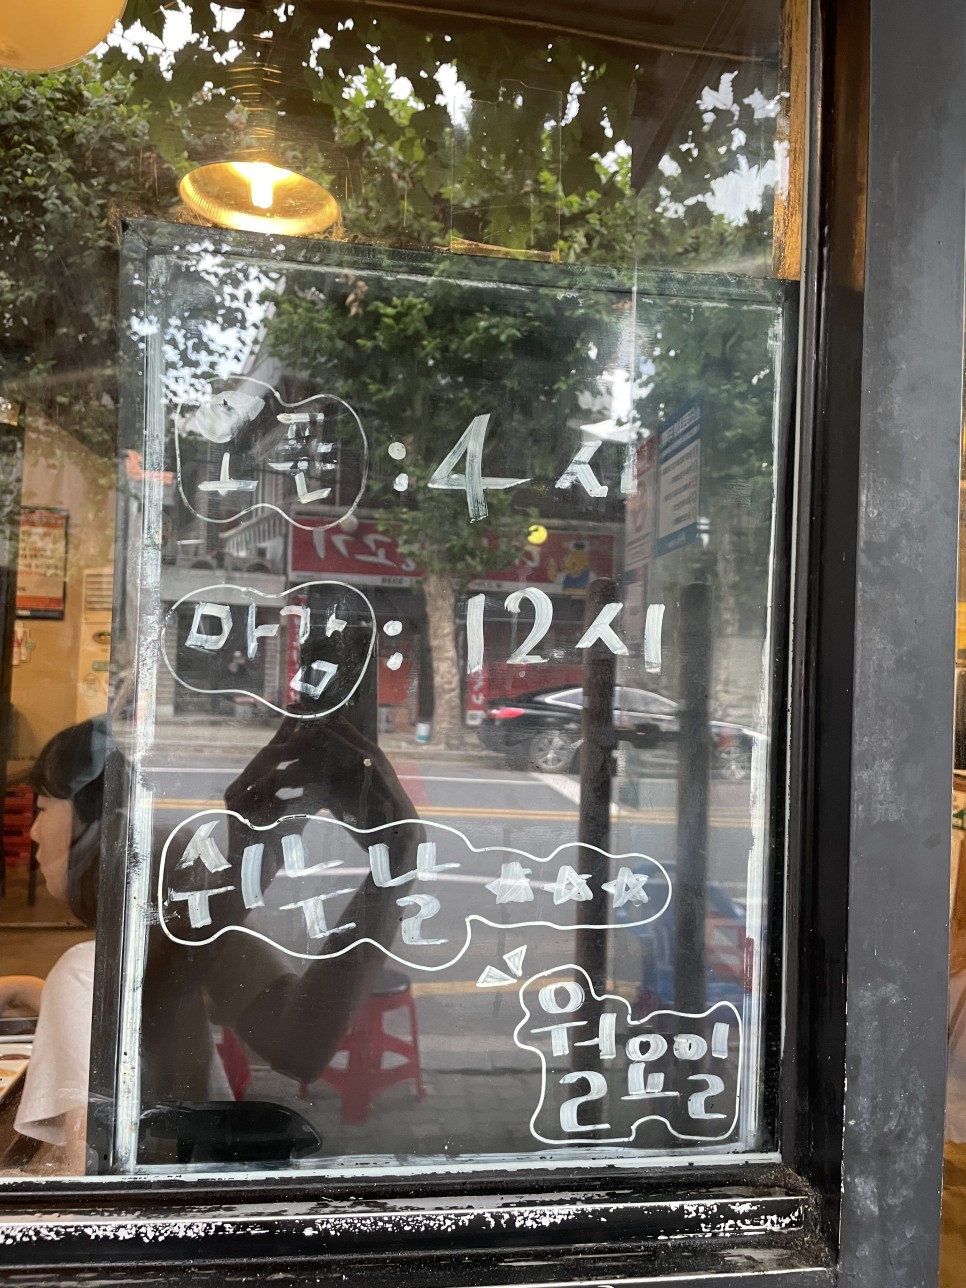 오픈 : 4 시
마감 : 12시
쉬는날 ★★★
월요일